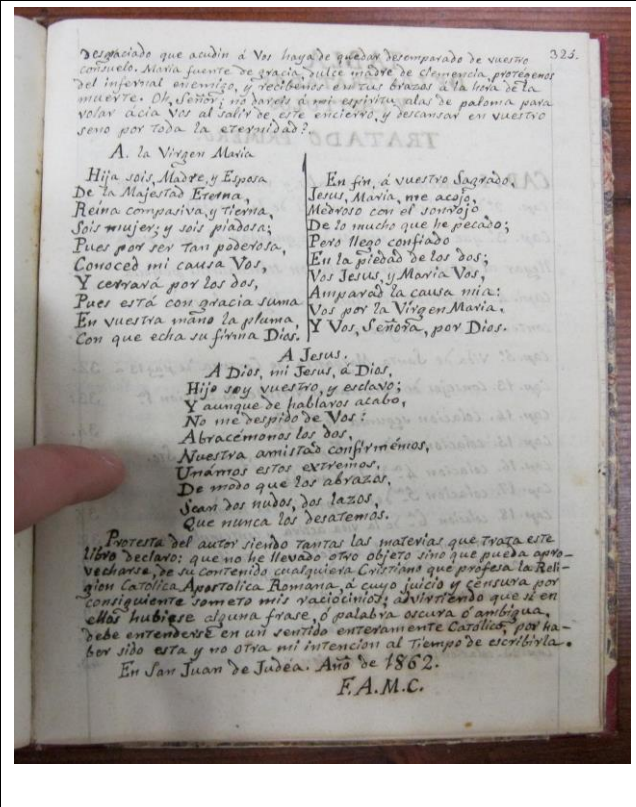 325.
desgraciado que acudin á Vos haya de quedar desemparado de vuestro
consuelo. Maria fuente de gracia, dulce madre de clemencia, protegenos
del infernal enemigo, y recibenos en tus brazos á la hora de la
muerte. Oh, Señor; no dareis á mi espiritu alas de paloma para
volar ácia Vos al salir de este encierro, y descansar en vuestro
seno por toda la eternidad?
A. la Virgen Maria
Hija sois, Madre, y Esposa
De la Majestad Eterna,
Reina compasiva, y tierna,
Sois mujer, y sois piadosa;
Pues por ser tan poderosa,
Conoced mi causa Vos,
Y cerrará por los dos,
Pues está con gracia suma
En vuestra mano la pluma,
Con que echa su firma Dios.
En fin, á vuestro Sagrado,
Jesus, Maria, me acojo,
Medroso con el sonrojo
De lo mucho que he pecado;
Pero llego confiado
En la piedad de los dos;
Vos Jesus, y Maria Vos,
Amparad la causa mia:
Vos por la Virgen Maria.
Y Vos, Señora, por Dios.
A Jesus.
A Dios, mi Jesus, á Dios,
Hijo soy vuestro, y esclavo;
Y aunque de hablaros acabo,
No me despido de Vos:
Abracémonos los dos,
Nuestra amistad confirmémos,
Unámos estos extremos,
De modo que los abrazos,
Sean dos nudos, dos lazos,
Que nunca los desatemos.
Protesta del autor siendo tantas las materias que trata este
libro declaro: que no he llevado otro objeto sino que pueda apro-
vecharse, de su contenido cualquiera Cristiano que profesa la Reli-
gion Catolica Apostolica Romana, á cuyo juicio y censura por
consiguiente someto mis raciocinios; advirtiendo que si en
ellos hubiese alguna frase, ó palabra oscura ó ambigua,
debe entenderse en un sentido enteramente Católico, por ha-
ber sido esta y no otra mi intencion al tiempo de escribirla.
En San Juan de Judéa. Año de 1862.
F.A.M.C.